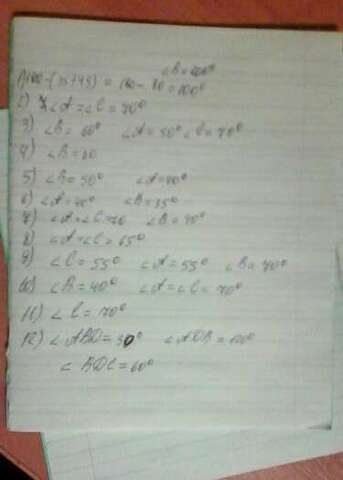 ∠B=100°
1) 180-(35+45) = 180-80=100°
2) ∠A=∠C=70°
3) ∠B=60° ∠A=50° ∠C=70°
4) ∠B=80
5) ∠B=50° ∠A=80°
6) ∠A=40° ∠B=35°
7) ∠A=∠C=70 ∠B=40°
8) ∠A=∠C=65°
9) ∠C=55° ∠A=55° ∠B=70°
10) ∠B=40° ∠A=∠C=70°
11) ∠C=70°
12) ∠ABD=30° ∠ADB=120°
∠BDC=60°